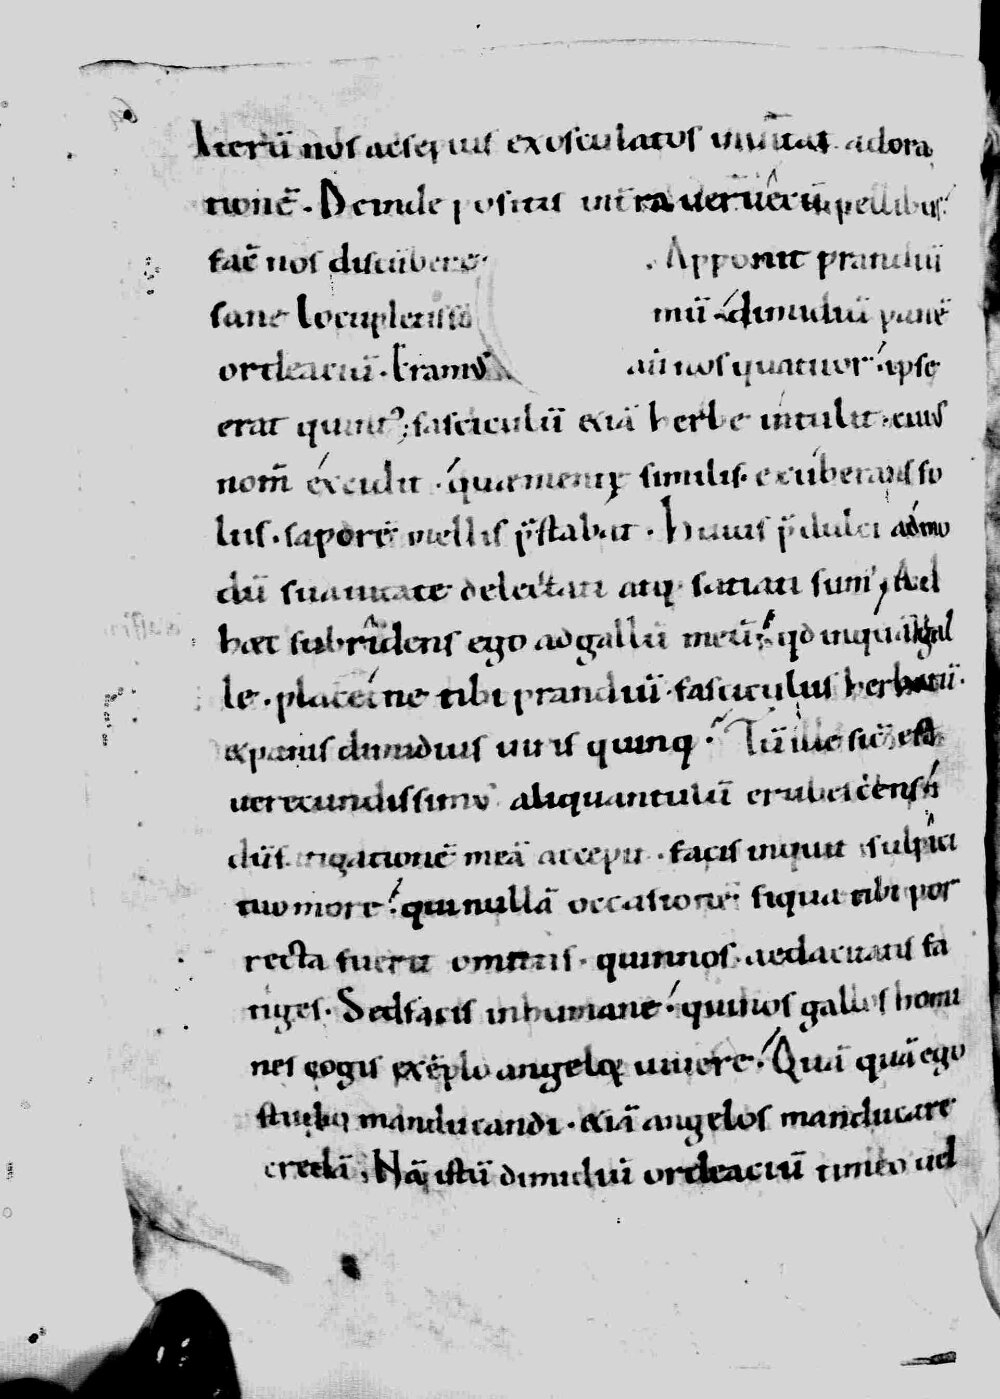 Iterū nos ac sepius exosculatus inuitat adora
tionē. Deinde positis intra veruecū pellibus
facͭ nos discūbere. Apponit prandiū
sane locupletissi mū dimidiū panē
ordeaciū. Eramus aū nos quatuor ipse
erat quintꝰ; fasciculū etiā herbe intulit. cuius
nom̄ excidit. quae mentę similis. exuberans fo
liis. saporē mellis p̄stabat. Huius p̄dulci admo
dū suauitate delectati atq; satiati sum; Ad
haec subridens ego ad gallū meū. qd inquā gal
le. placet ne tibi prandiū. fasciculus herbarū.
et panis dimidius uiris quinq;. Tū ille sic̄ est
uerecundissimus aliquantulū erubescens
dū fatigationē meā accepit. facis inquit sulpici
tuo more. qui nullā occasionē. siqua tibi por
recta fuerit omittis. quin nos aedacitatis fa
tiges. Sed facis inhumane. qui nos gallos homi
nes cogis exēplo angeloꝝ uiuere. Quā quā ego
studio manducandi. etiā angelos manducare
credā; Nā istū dimidiū ordeaciū timeo uel